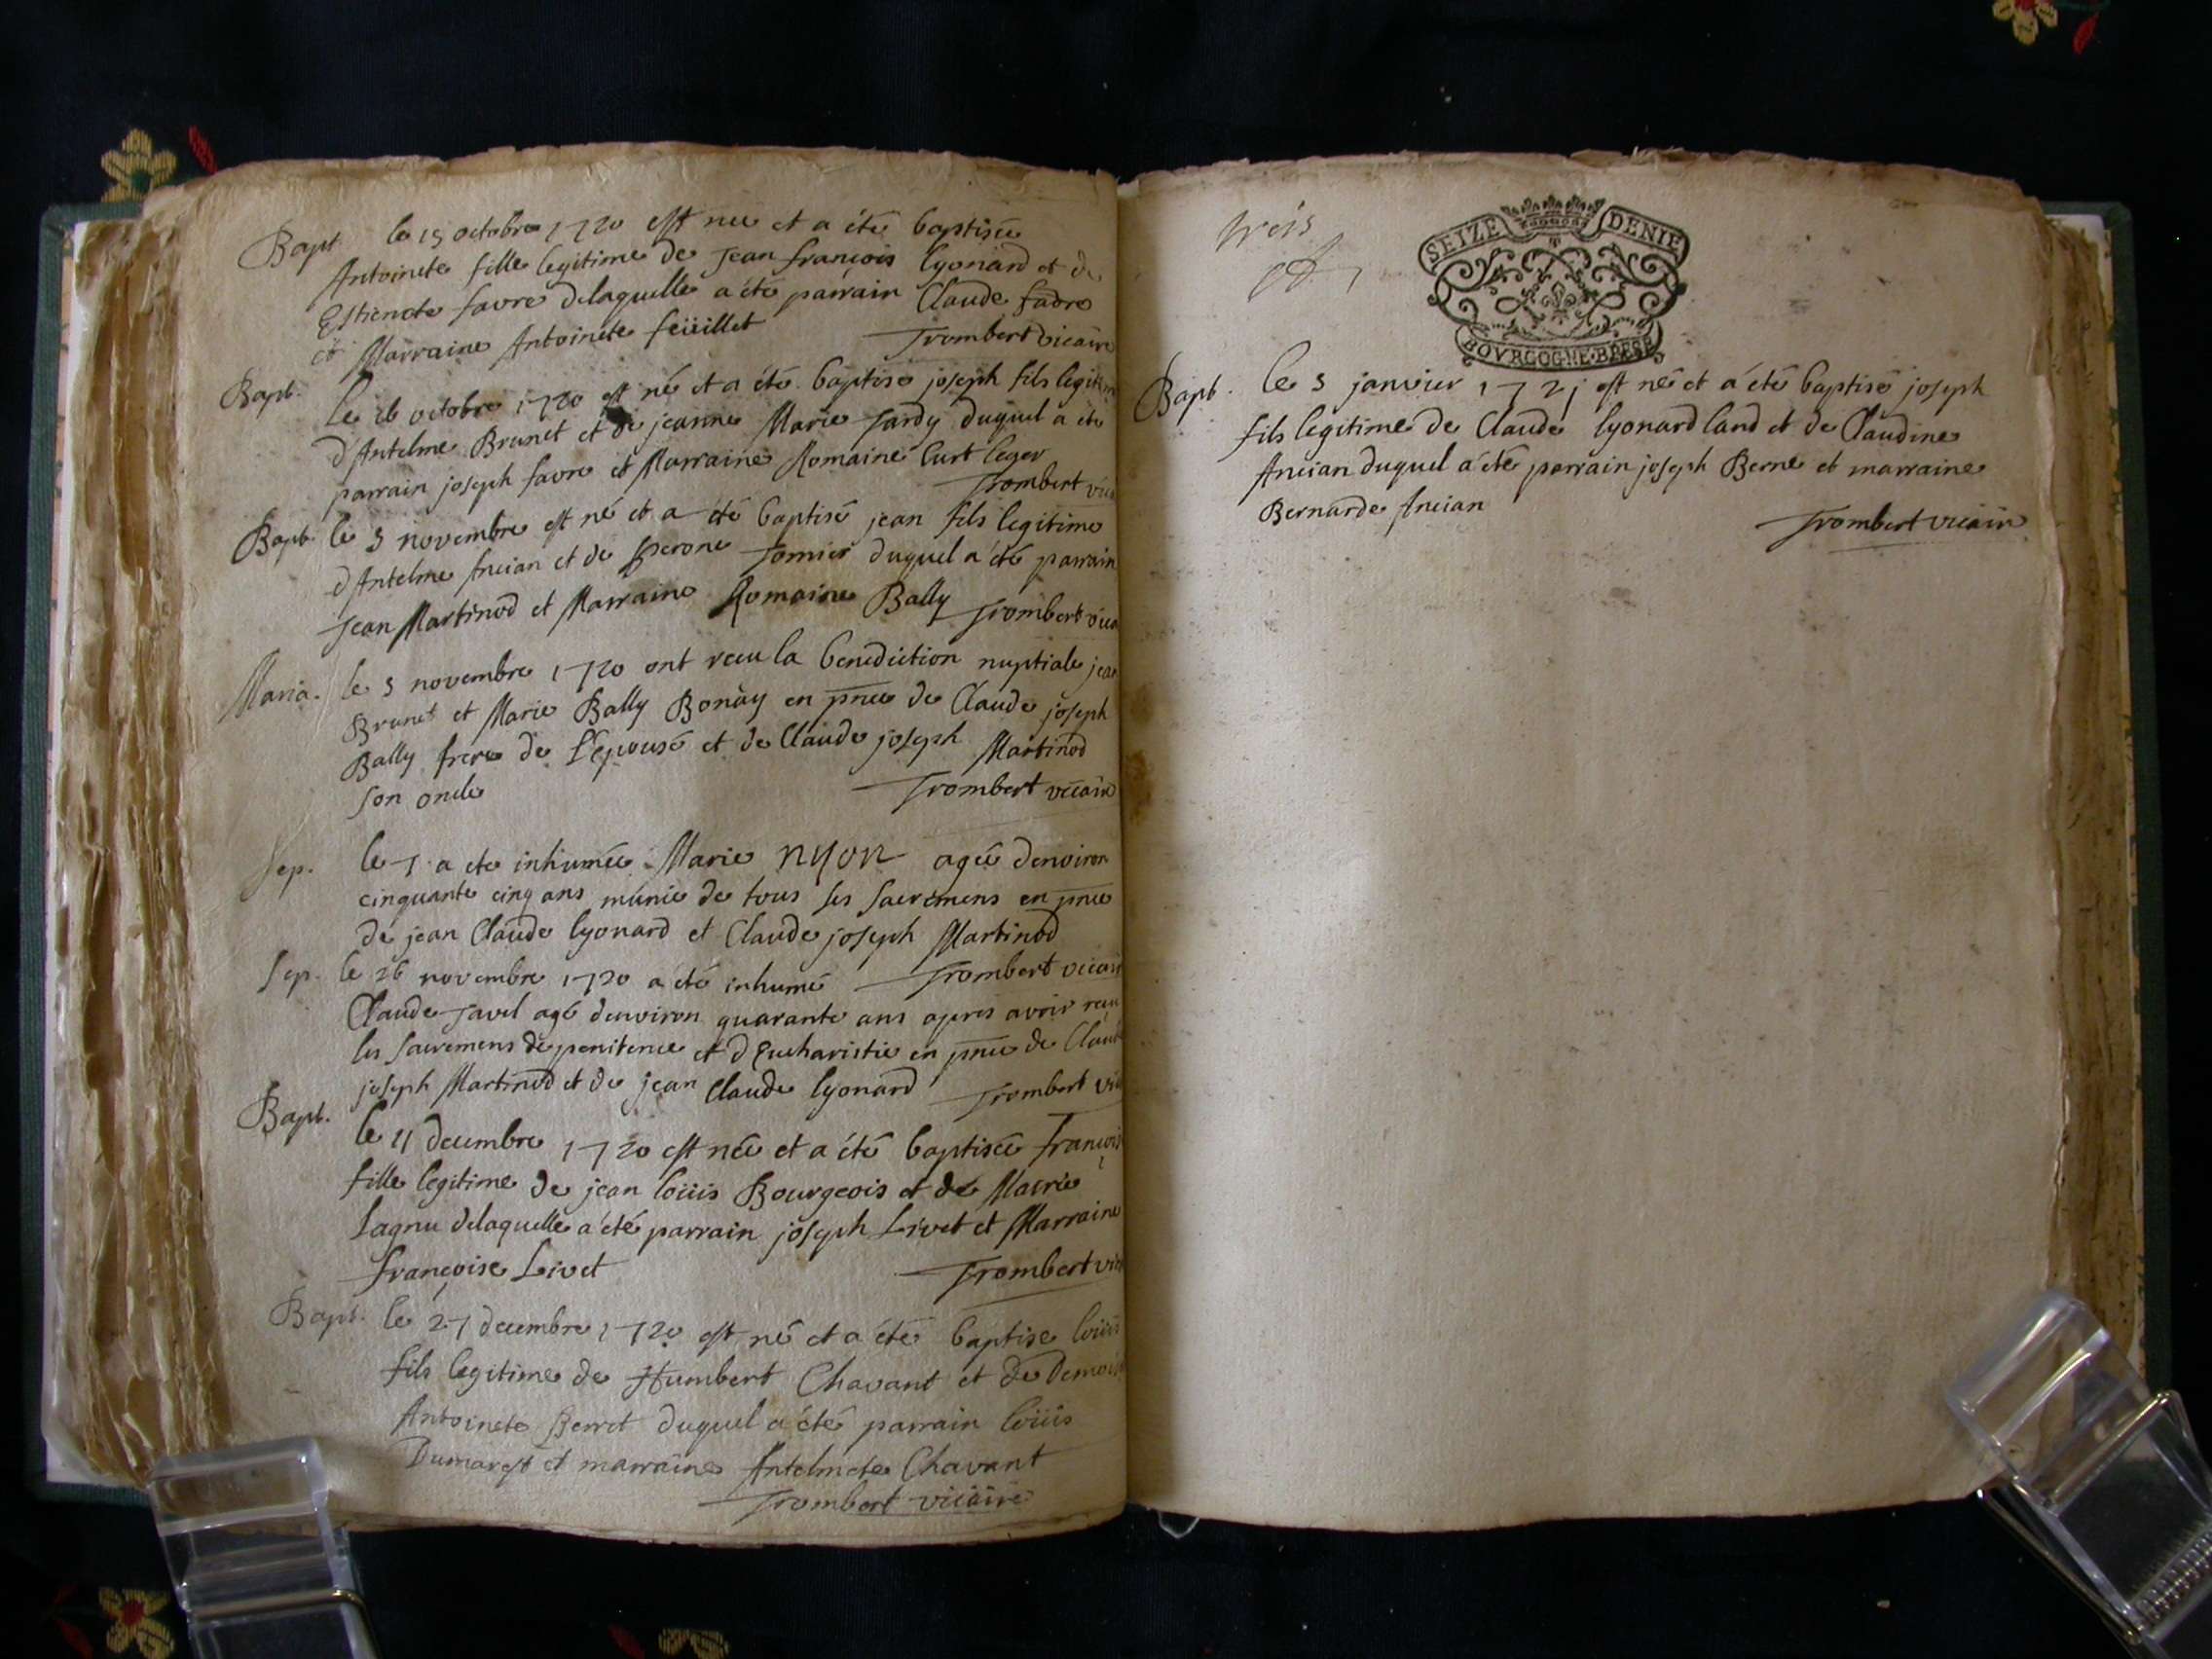 Bapt. le 15 octobre 1720 est nee et a été baptisée
Antoinete fille legitime de Jean françois lyonard et de
Estienete favre delaquelle a été parrain Claude favre
et Marraine Antoinete feüillet Trombert vicaire
Bapt. Le 26 octobre 1720 est né et a été baptisé joseph fils legitime
d'Antelme Brunet et de jeanne Marie Tardy duquel a été
parrain joseph favre et Marraine Romaine Curt leger
Trombert vica
Bapt. le 5 novembre est né et a été baptisé jean fils legitime
d'Antelme Ancian et de perone Tornier duquel a été parrain
Jean Martinod et Marraine Romaine Bally Trombert vica
Maria. le 5 novembre 1720 ont receu la benediction nuptiale jean
Brunet et Marie Bally Bonäy en pnce de Claude joseph
Bally frere de l'Epouse et de Claude joseph Martinod
son oncle Trombert vicaire
Sep. le 7 a ete inhumée Marie nyon agée denviron
cinquante cinq ans munie de tous ses sacremens en pnce
de jean Claude lyonard et Claude joseph Martinod
Sep. le 26 novembre 1720 a été inhumé Trombert vicair
Claude Tavel agé denviron quarante ans apres avoir receu
les sacremens de penitence et d'Eucharistie en pnce de Claude
joseph Martinod et de jean Claude lyonard Trombert vic
Bapt. le 11 decembre 1720 est née et a été baptisée françois
fille legitime de jean loüis Bourgeois et de Marie
Lagnu delaquelle a été parrain joseph Livet et Marraine
françoise Livet Trombert vica
Bapt. le 27 decembre 1720 est né et a été baptise loüis
fils legitime de Humbert Chavant et de demois
Antoinete Berret duquel a été parrain loüis
Dumarest et marraine Antelmete Chavant
Trombert vicaire
trois
SEIZE DENIE
BOVRGOGNE·BRESE
Bapt. le 5 janvier 1721 est né et a été baptisé joseph
fils legitime de Claude lyonard land et de Claudine
Ancian duquel a été parrain joseph Berne et marraine
Bernarde Ancian
Trombert vicaire